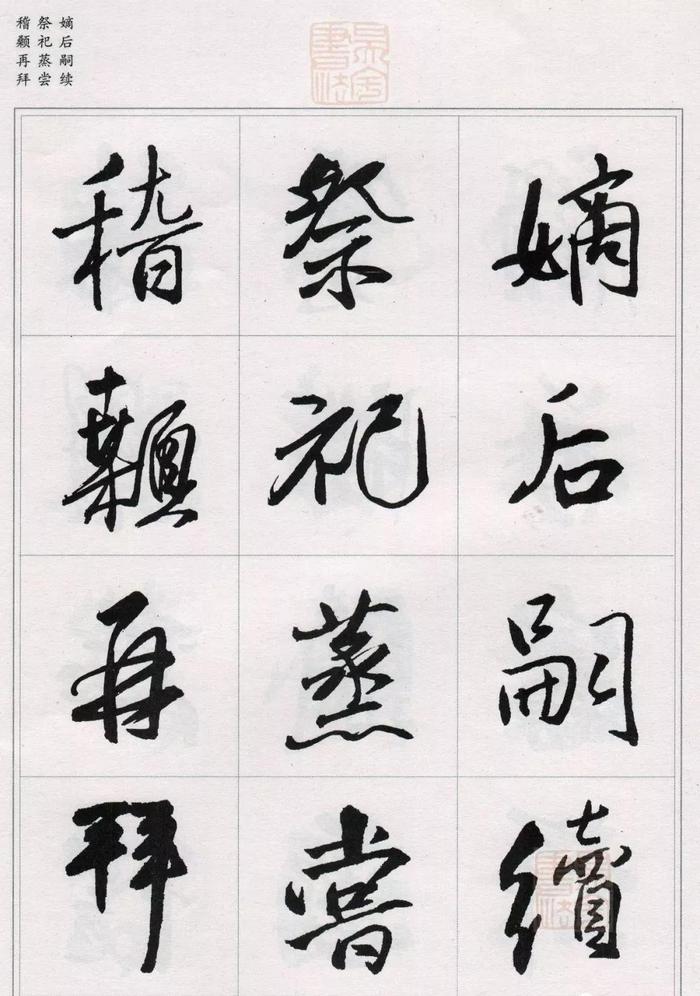 嫡后嗣续
祭祀蒸尝
稽颡再拜
嫡后嗣續
祭祀蒸嘗
稽顙再拜